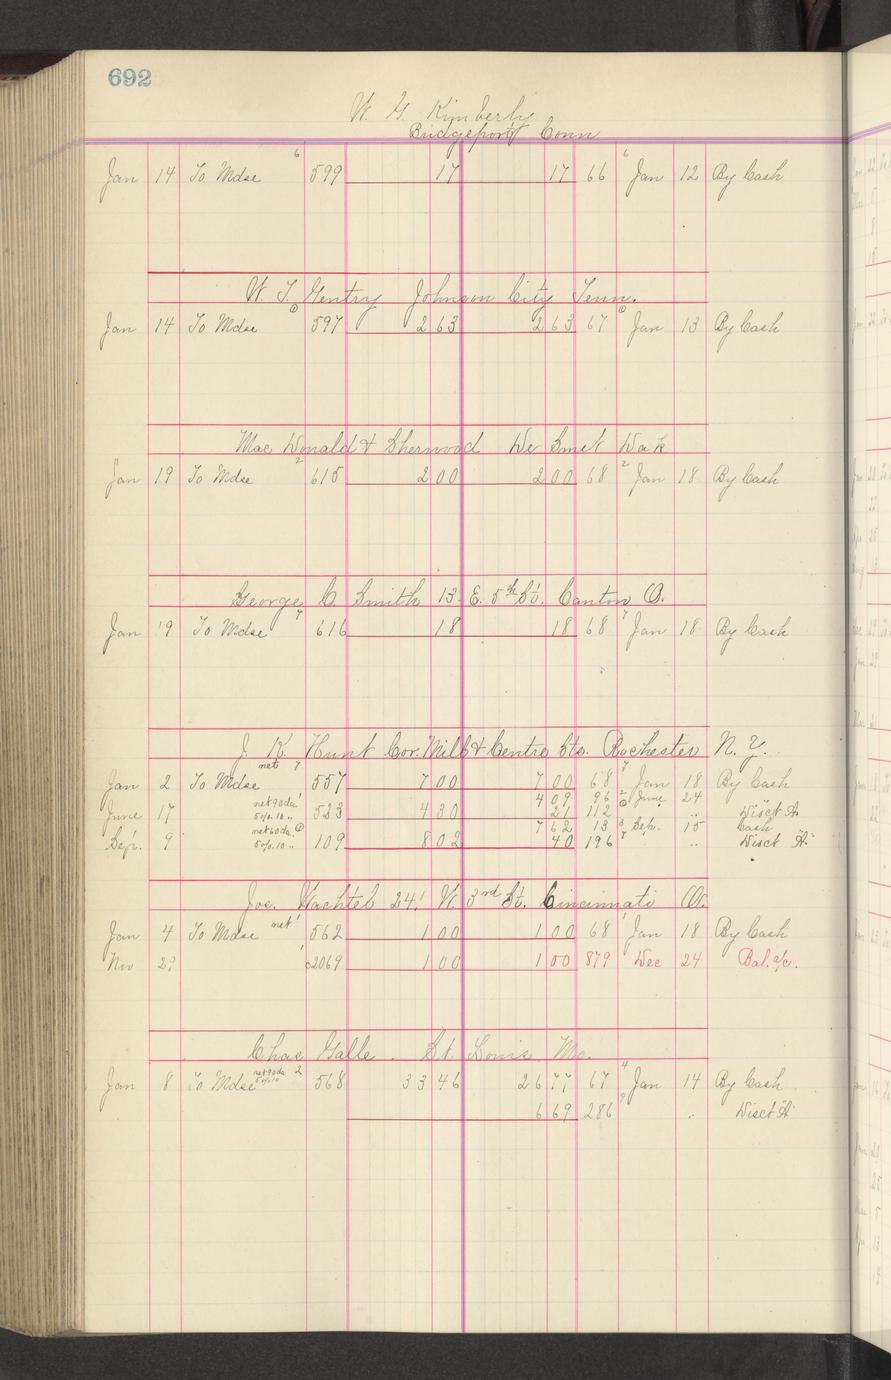 692
W. G. Kimberly
Bridgeport Conn
Jan 14 To Mdse 6 599 17 17 66 6 Jan 12 By Cash
W. T. Gentry Johnson City Tenn.
Jan 14 To Mdse 597 2 63 2 63 67 Jan 13 By Cash
Mac Donald & Sherwood De Smet Dak
Jan 19 To Mdse 2 615 2 00 2 00 68 2 Jan 18 By Cash
George C. Smith 13 E. 5th St. Canton O.
Jan 19 To Mdse 7 616 18 18 68 7 Jan 18 By Cash
J. K. Hunt Cor. Mill & Centre Sts. Rochester N. Y.
Jan 2 To Mdse net 7 557 7 00 7 00 68 7 Jan 18 By Cash
4 09 96 2 June 24
June 17 net 90 da 1 5% 10 " 523 4 30 21 112 " Disct A.
7 62 13 3 Sep. 15 Cash
Sep. 9 net 60 da 5% 10 " 109 8 02 40 196 7 " Disct A."
Jos. Wachtel 241 W. 3rd St. Cincinnati O.
Jan 4 To Mdse net 1 562 1 00 1 00 68 1 Jan 18 By Cash
Nov 29 2069 1 00 1 00 879 Dec 24 Bal. a/c.
Chas Galle. St. Louis Mo.
Jan 8 To Mdse net 90 da 5% 10 2 568 33 46 26 77 67 4 Jan 14 By Cash
6 69 286 9 " Disct A